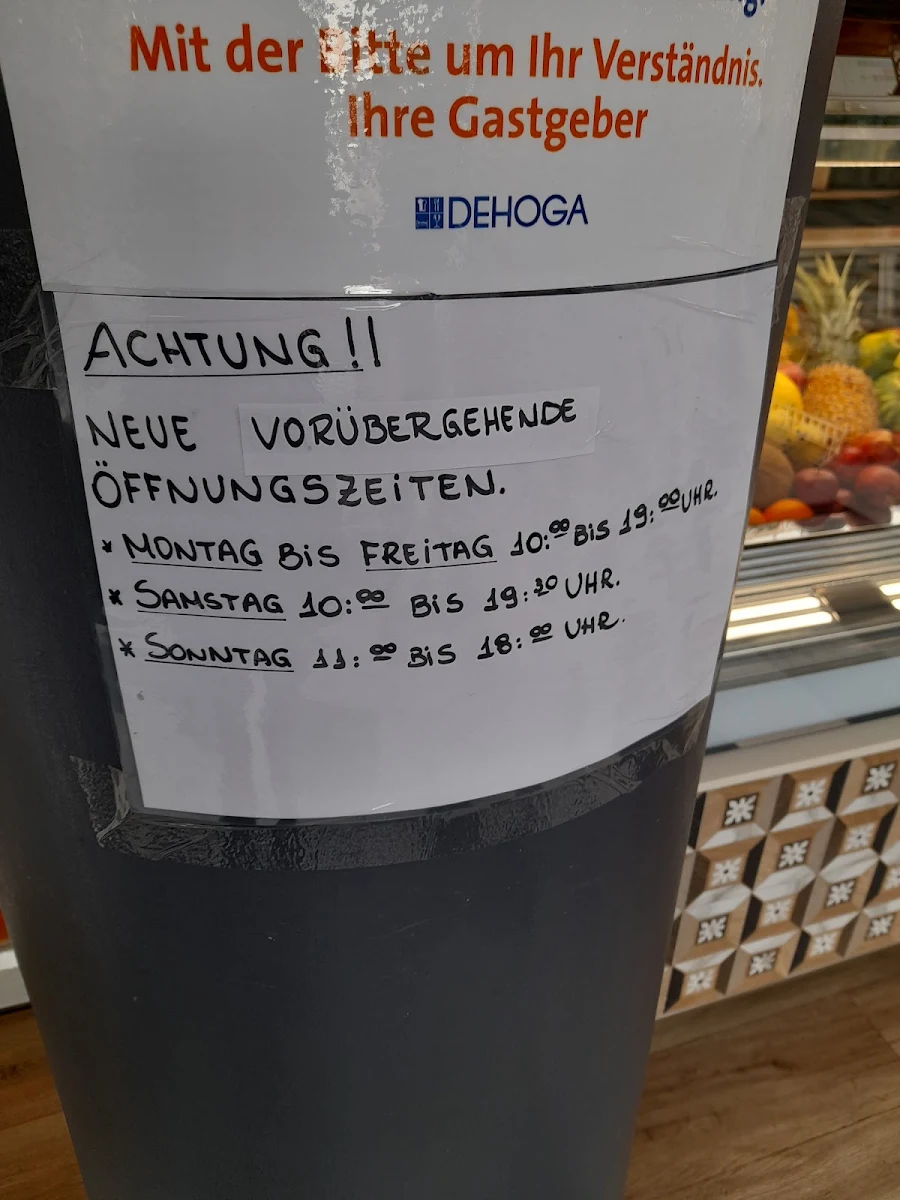 Mit der Bitte um Ihr Verständnis.
Ihre Gastgeber
DEHOGA
ACHTUNG!!
NEUE VORÜBERGEHENDE
ÖFFNUNGSZEITEN.
* MONTAG BIS FREITAG 10:00 BIS 19:00 UHR.
* SAMSTAG 10:00 BIS 19:30 UHR.
* SONNTAG 11:00 BIS 18:00 UHR.